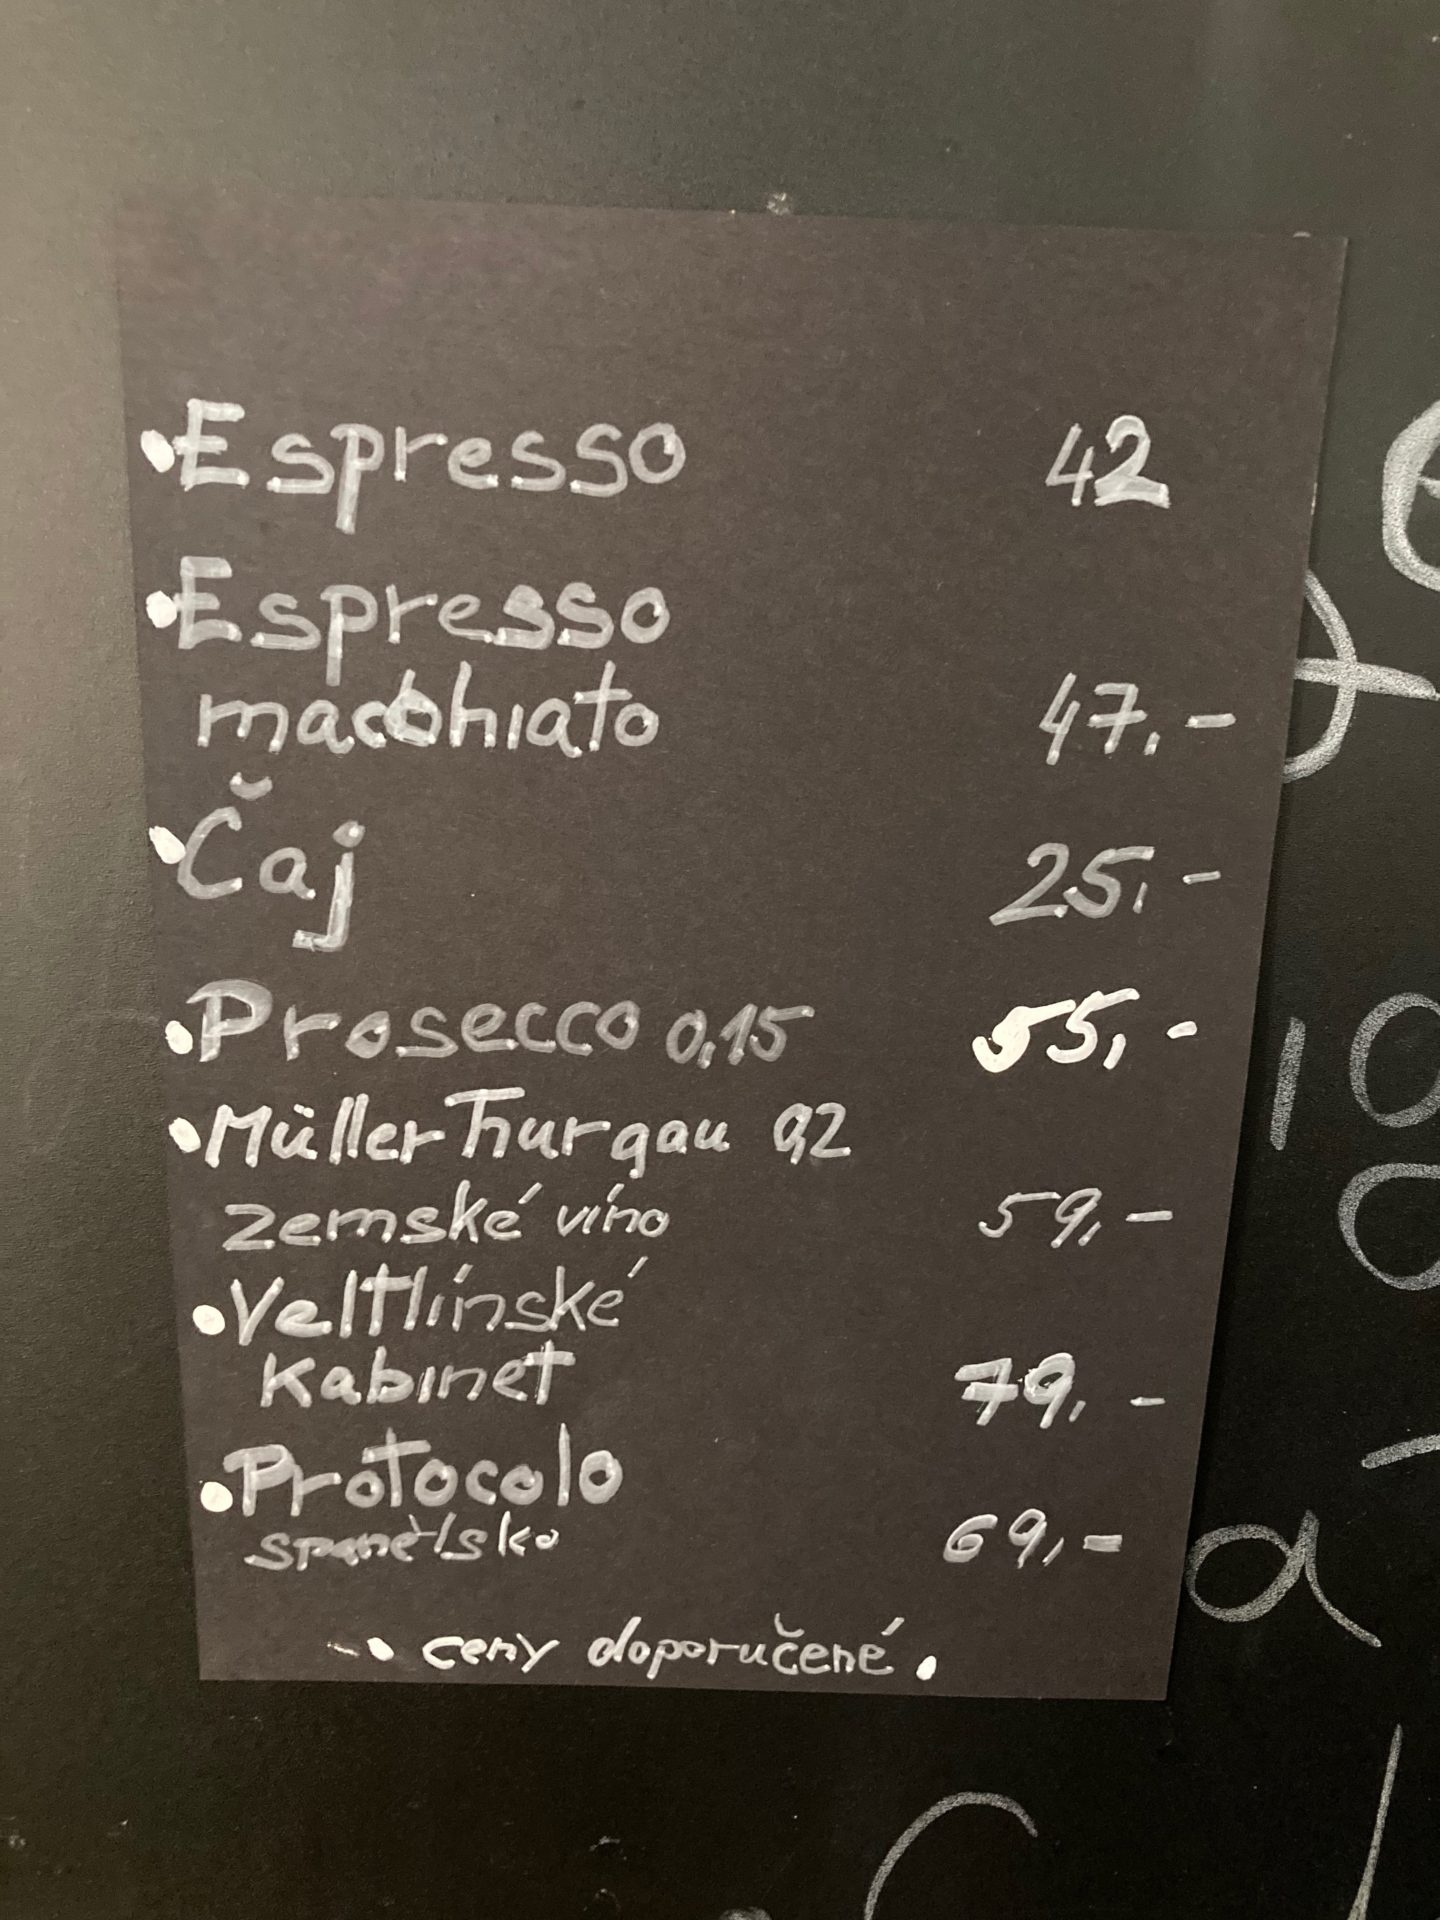 •Espresso 42
•Espresso
macchiato 47,-
•Čaj 25,-
•Prosecco 0,15 55,-
•Müller Thurgau 0,2
zemské víno 59,-
•Veltlínské
Kabinet 79,-
•Protocolo
spanělsko 69,-
• ceny doporučené •